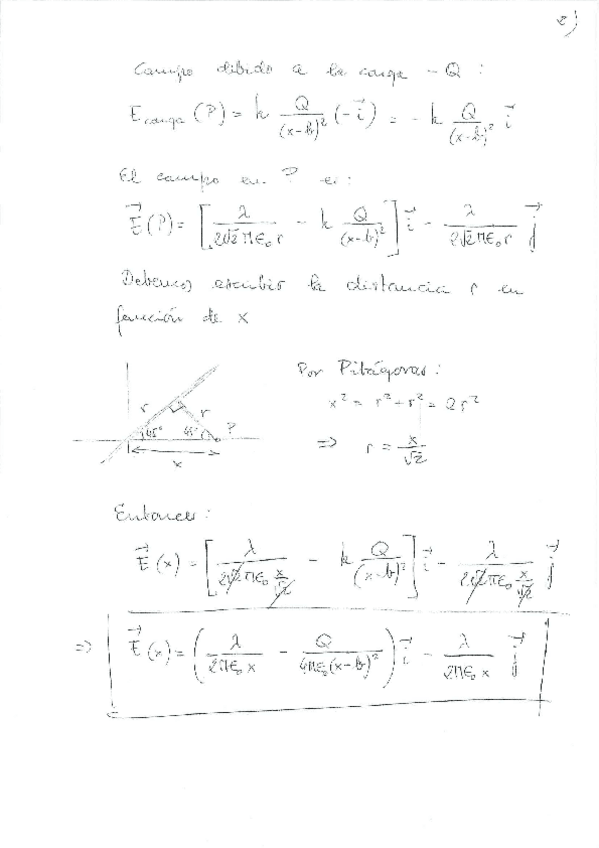 2)
Campo debido a la carga -Q :
E carga (P) = k Q/(x-b)² (-i⃗) = - k Q/(x-b)² i⃗
El campo en P es:
E⃗(P) = [λ/(2√2 πε₀ r) - k Q/(x-b)²] i⃗ - λ/(2√2 πε₀ r) j⃗
Debemos escribir la distancia r en
función de x
Por Pitágoras:
x² = r² + r² = 2r²
⇒ r = x/√2
r r 45° 45° P
x
Entonces:
E⃗(x) = [λ/(2√2 πε₀ x/√2) - k Q/(x-b)²] i⃗ - λ/(2√2 πε₀ x/√2) j⃗
⇒ E⃗(x) = (λ/(2πε₀ x) - Q/(4πε₀(x-b)²)) i⃗ - λ/(2πε₀ x) j⃗